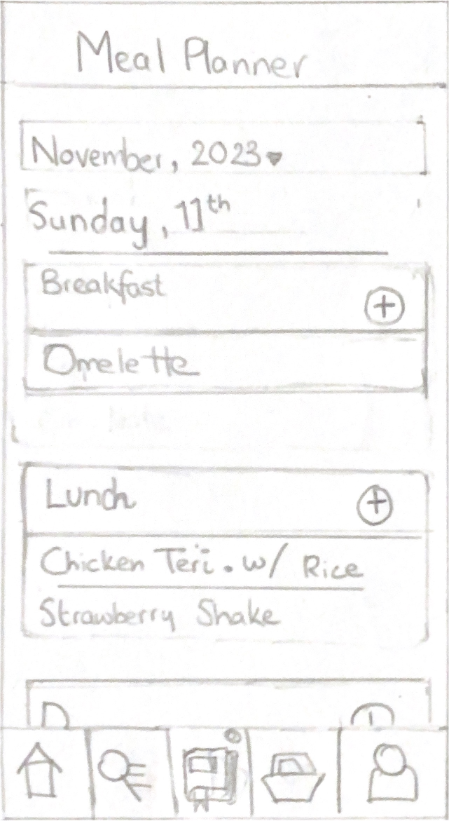 Meal Planner
November, 2023
Sunday, 11th
Breakfast
Omelette
Lunch
Chicken Teri. w/ Rice
Strawberry Shake
D